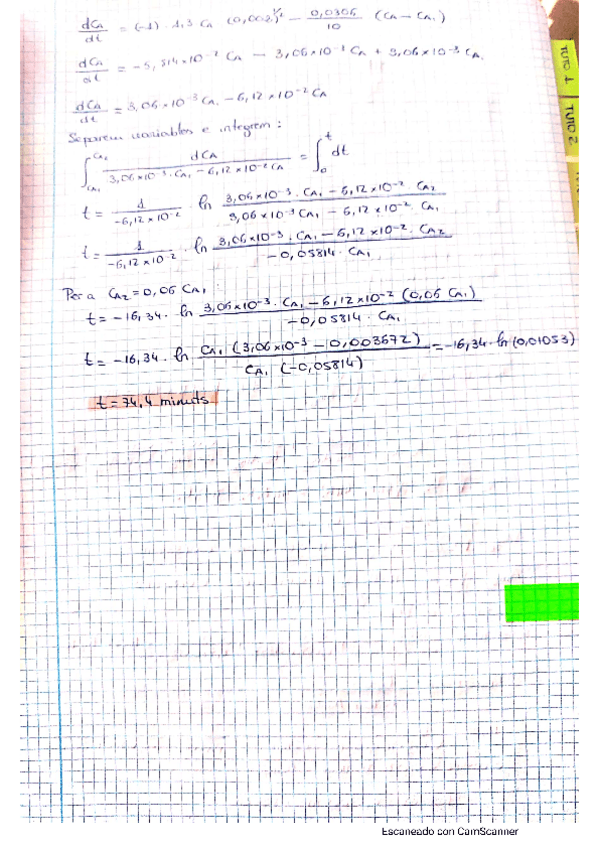 dCA/dt = (-1) · 1,3 CA (0,002)^1/2 - 0,0306/10 (CA - CA1)
dCA/dt = -5,814×10^-2 CA - 3,06×10^-3 CA + 3,06×10^-3 CA1
dCA/dt = 3,06×10^-3 CA1 - 6,12×10^-2 CA
Separem variables e integrem:
∫_CA1^CA2 dCA / (3,06×10^-3 · CA1 - 6,12×10^-2 CA) = ∫_0^t dt
t = 1/(-6,12×10^-2) · ln (3,06×10^-3 · CA1 - 6,12×10^-2 · CA2)/(3,06×10^-3 CA1 - 6,12×10^-2 · CA1)
t = 1/(-6,12×10^-2) · ln (3,06×10^-3 · CA1 - 6,12×10^-2 · CA2)/(-0,05814 · CA1)
Per a CA2 = 0,06 CA1:
t = -16,34 · ln (3,06×10^-3 · CA1 - 6,12×10^-2 (0,06 CA1))/(-0,05814 · CA1)
t = -16,34 · ln (CA1 (3,06×10^-3 - 0,003672))/(CA1 (-0,05814)) = -16,34 · ln (0,01053)
t = 74,4 minuts
TUTO 1
TUTO 2
Escaneado con CamScanner